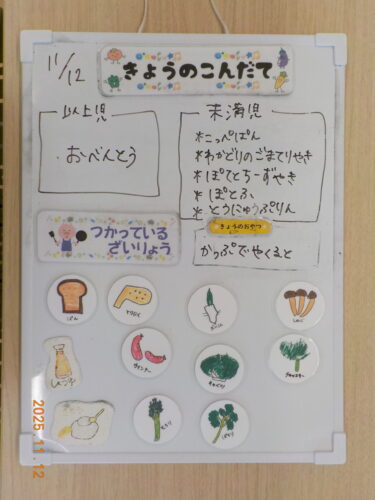 11/12
きょうのこんだて
以上児
・おべんとう
未満児
*こっぺぱん
*わかどりのごまてりやき
*ぽてとちーずやき
*ぽとふ
*とうにゅうぷりん
きょうのおやつ
かっぷでやくると
つかっている
ざいりょう
ぱん
とりにく
だいこん
しめじ
ウインナー
キャベツ
ブロッコリー
しょうゆ
セロリ
パセリ
2025.11.12